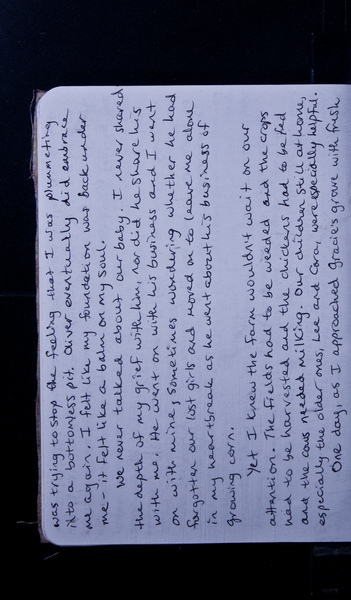 was trying to stop the feeling that I was plummeting
into a bottomless pit. Oliver eventually did embrace
me again. I felt like my foundation was back under
me - it felt like a balm on my soul.
We never talked about our baby. I never shared
the depth of my grief with him, nor did he share his
with me. He went on with his business and I went
on with mine, sometimes wondering whether he had
forgotten our lost girls and moved on to leave me alone
in my heartbreak as he went about his business of
growing corn.
Yet I knew the farm wouldn't wait on our
attention. The fields had to be weeded and the crops
had to be harvested and the chickens had to be fed
and the cows needed milking. Our children still at home,
especially the older ones, Lee and Cora, were especially helpful.
One day, as I approached Gracie's grave with fresh